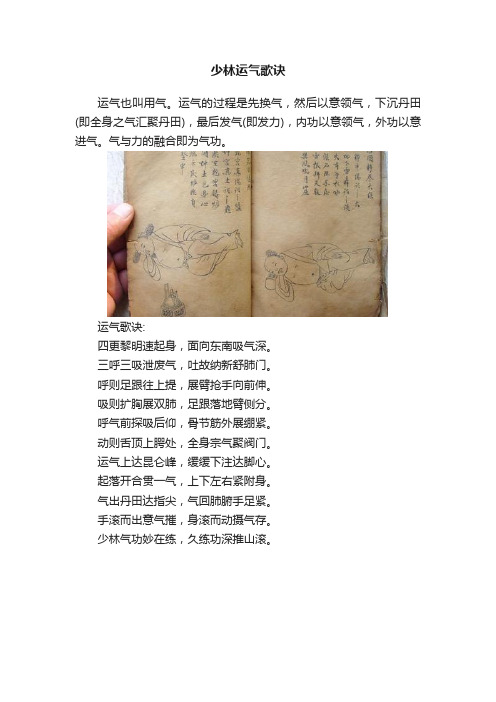 少林运气歌诀
运气也叫用气。运气的过程是先换气，然后以意领气，下沉丹田
(即全身之气汇聚丹田)，最后发气(即发力)，内功以意领气，外功以意
进气。气与力的融合即为气功。
运气歌诀:
四更黎明速起身，面向东南吸气深。
三呼三吸泄废气，吐故纳新舒肺门。
呼则足跟往上提，展臂抢手向前伸。
吸则扩胸展双肺，足跟落地臂侧分。
呼气前探吸后仰，骨节筋外展绷紧。
动则舌顶上腭处，全身宗气聚阀门。
运气上达昆仑峰，缓缓下注达脚心。
起落开合贯一气，上下左右紧附身。
气出丹田达指尖，气回肺腑手足紧。
手滚而出意气摧，身滚而动摄气存。
少林气功妙在练，久练功深推山滚。